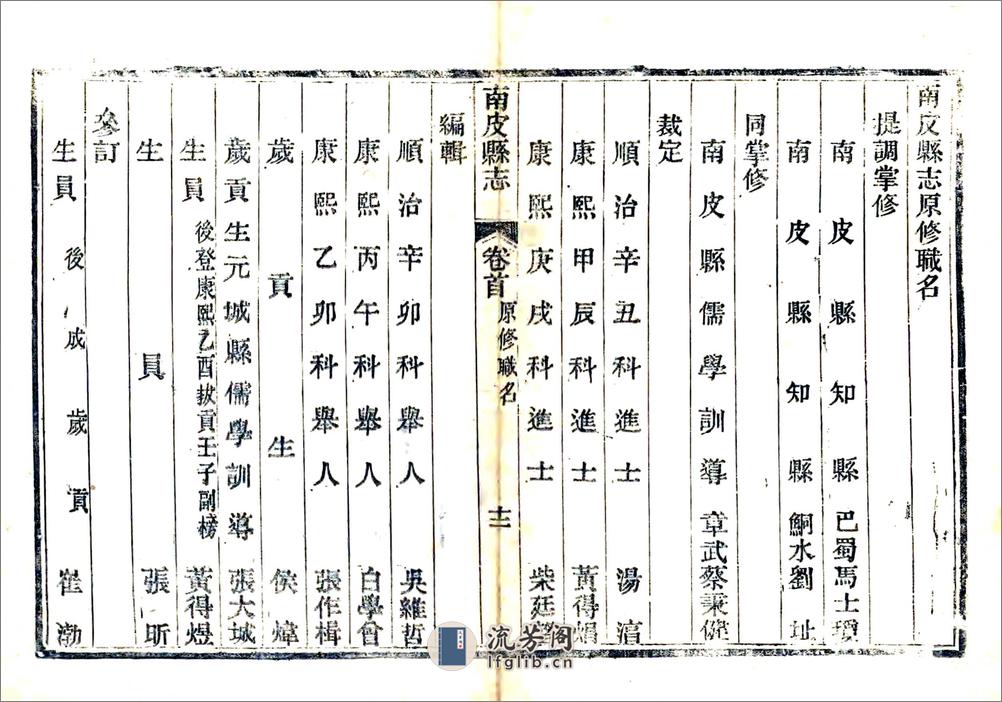 南皮縣志原修職名
提調掌修
南皮縣知縣 巴蜀馬士瓊
南皮縣知縣 鮦水劉址
同掌修
南皮縣儒學訓導 章武蔡秉
裁定
順治辛丑科進士 湯
康熙甲辰科進士 黃得
康熙庚戌科進士 柴廷
南皮縣志 卷首 原修職名 十二
編輯
順治辛卯科舉人 吳維哲
康熙丙午科舉人 白學曾
康熙乙卯科舉人 張作楫
歲貢生 侯煒
歲貢生元城縣儒學訓導 張大城
生員 後登康熙乙酉拔貢壬子副榜 黃得煜
生員 張昕
參訂
生員 後成歲貢 崔渤
流芳阁
lfglib.cn